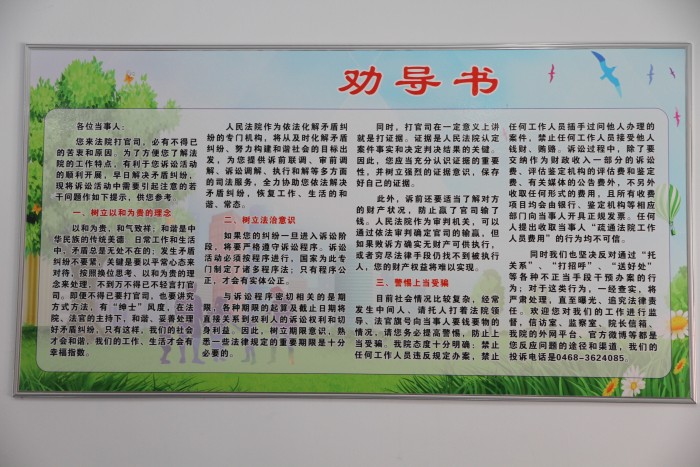 劝导书
各位当事人：
您来法院打官司，必有不得已
的苦衷和原因。为了方便您了解法
院的工作特点，有利于您诉讼活动
的顺利开展，早日解决矛盾纠纷，
现将诉讼活动中需要引起注意的若
干问题作如下提示，供您参考。
一、树立以和为贵的理念
以和为贵，和气致祥；和谐是中
华民族的传统美德。日常工作和生活
中，矛盾总是无处不在的；发生矛盾
纠纷不要紧，关键是要以平常心态来
对待，按照换位思考、以和为贵的理
念来处理，不到万不得已不轻言打官
司。即便不得已要打官司，也要讲究
方式方法，有“绅士”风度，在法
院、法官的主持下，和谐、妥善处理
好矛盾纠纷，只有这样，我们的社会
才会和谐，我们的工作、生活才会有
幸福指数。
人民法院作为依法化解矛盾纠
纷的专门机构，将从及时化解矛盾
纠纷、努力构建和谐社会的目标出
发，为您提供诉前联调、审前调
解、诉讼调解、执行和解等多方面
的司法服务，全力协助您依法解决
矛盾纠纷，恢复工作、生活的和
谐、常态。
二、树立法治意识
如果您的纠纷一旦进入诉讼阶
段，将要严格遵守诉讼程序。诉讼
活动必须按程序进行，国家为此专
门制定了诸多程序法；只有程序公
正，才会有实体公正。
与诉讼程序密切相关的是期
限，各种期限的起算及截止日期将
直接关系到权利人的诉讼权利和切
身利益。因此，树立期限意识，熟
悉一些法律规定的重要期限是十分
必要的。
同时，打官司在一定意义上讲
就是打证据。证据是人民法院认定
案件事实和决定判决结果的关键。
因此，您应当充分认识证据的重要
性，并树立强烈的证据意识，保存
好自己的证据。
此外，诉前还要适当了解对方
的财产状况，防止赢了官司输了
钱。人民法院作为审判机关，可以
通过依法审判确定官司的输赢，但
如果败诉方确实无财产可供执行，
或者穷尽法律手段仍找不到被执行
人，您的财产权益将难以实现。
三、警惕上当受骗
目前社会情况比较复杂，经常
发生中间人、请托人打着法院领
导、法官旗号向当事人要钱要物的
情况。请您务必提高警惕，防止上
当受骗。我院态度十分明确：禁止
任何工作人员违反规定办案，禁止
任何工作人员插手过问他人办理的
案件，禁止任何工作人员接受他人
钱财、贿赂。诉讼过程中，除了要
交纳作为财政收入一部分的诉讼
费、评估鉴定机构的评估费和鉴定
费、有关媒体的公告费外，不另外
收取任何形式的费用，且所有收费
项目均会由银行、鉴定机构等相应
部门向当事人开具正规发票。任何
人提出收取当事人“疏通法院工作
人员费用”的行为均不可信。
同时我们也坚决反对通过“托
关系”、“打招呼”、“送好处”
等各种不正当手段干预办案的行
为；对于这类行为，一经查实，将
严肃处理，直至曝光、追究法律责
任。欢迎您对我们的工作进行监
督，信访室、监察室、院长信箱、
我院的外网平台、官方微博等都是
您反应问题的途径和渠道，我们的
投诉电话是0468-3624085.